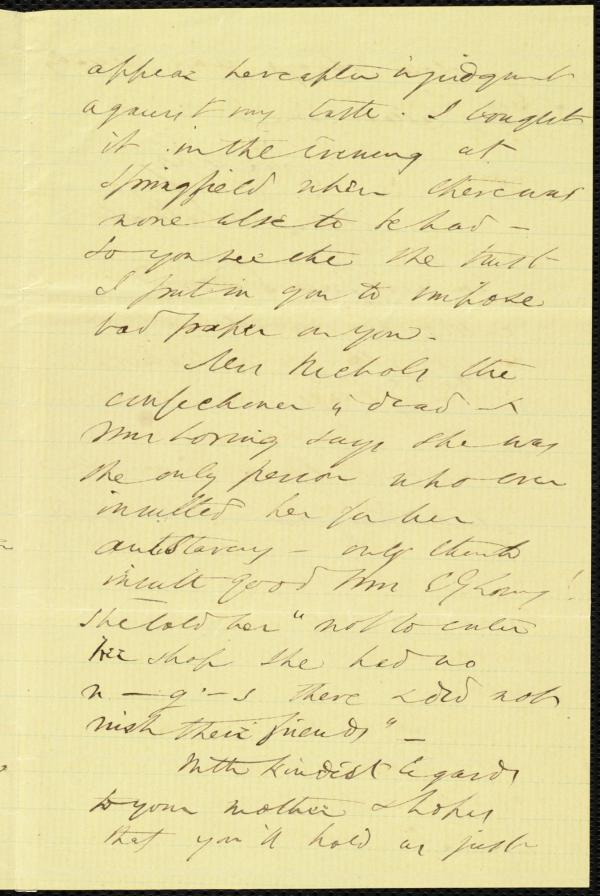 appear hereafter in judgment
against my taste. I bought
it in the evening at
Springfield when there was
none else to be had –
So you see the the trust
I put in you to impose
bad paper on you.
Mrs Nichols the
confectioner is dead – &
Mrs Loring says she was
the only person who ever
insulted her for her
antislavery – only think
insult good Mrs E G Loring!
She told her "not to enter
her shop she had no
n – g – s there & did not
wish their friends" –
With kindest regards
to your mother & hopes
that you'll hold us just